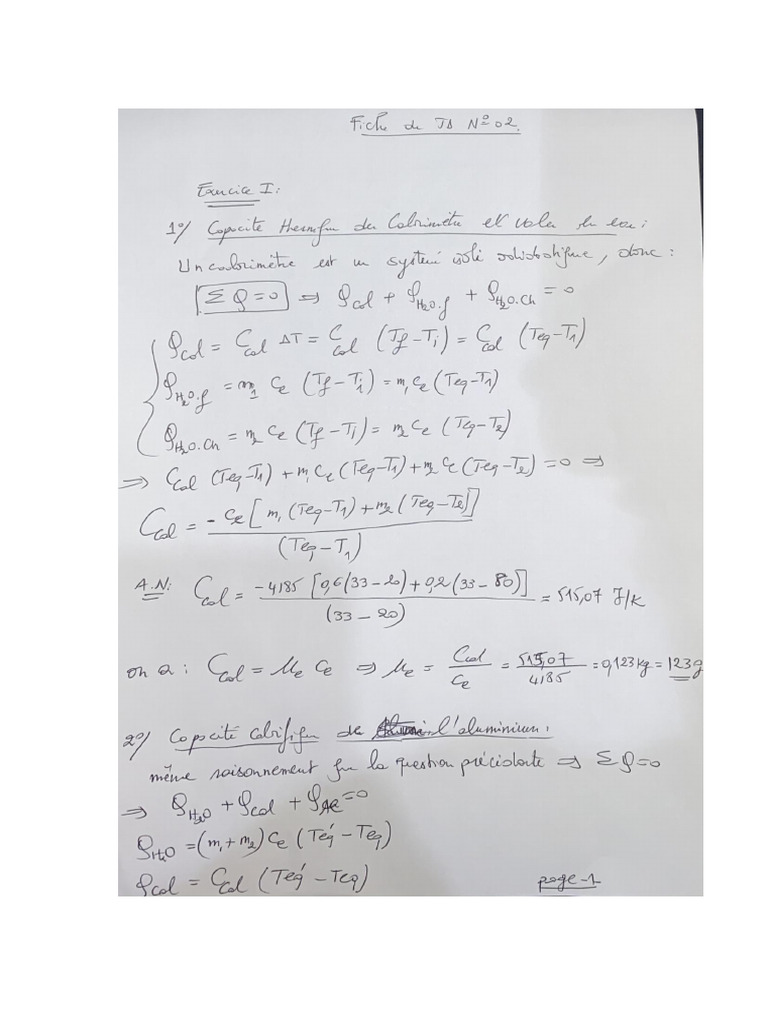 Fiche de TD N° 02.
Exercice I:
1°/ Capacité thermique du Calorimètre et valeur en eau:
Un calorimètre est un système isolé adiabatique, donc:
ΣQ=0 ⇒ Qcal + QH2O.f + QH2O.Ch = 0
Qcal = Ccal ΔT = Ccal (Tf-Ti) = Ccal (Teq-T1)
QH2O.f = m1 Ce (Tf-Ti) = m1 Ce (Teq-T1)
QH2O.Ch = m2 Ce (Tf-Ti) = m2 Ce (Teq-T2)
⇒ Ccal (Teq-T1) + m1 Ce (Teq-T1) + m2 Ce (Teq-T2) = 0 ⇒
Ccal = -Ce [m1 (Teq-T1) + m2 (Teq-T2)] / (Teq-T1)
A.N: Ccal = -4185 [0,6 (33-20) + 0,2 (33-80)] / (33-20) = 515,07 J/K
on a: Ccal = Me Ce ⇒ Me = Ccal / Ce = 515,07 / 4185 = 0,123 kg = 123 g
2°/ Capacité calorifique de l'aluminium:
même raisonnement que la question précédente ⇒ ΣQ=0
⇒ QH2O + Qcal + QAl = 0
QH2O = (m1+m2) Ce (Teq'-Teq)
Qcal = Ccal (Teq'-Teq)
page-1